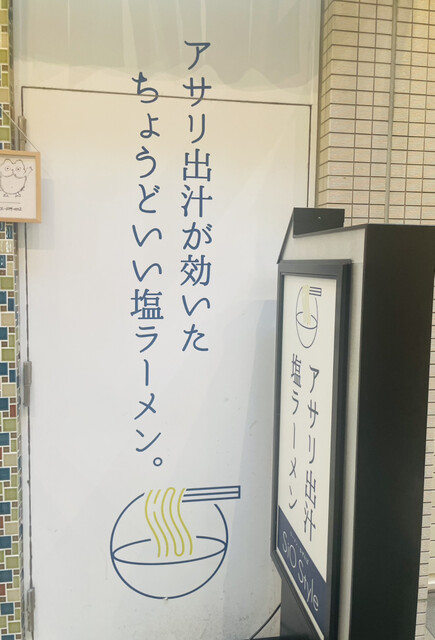 アサリ出汁が効いた
ちょうどいい塩ラーメン。
アサリ出汁
塩ラーメン
SiO Style